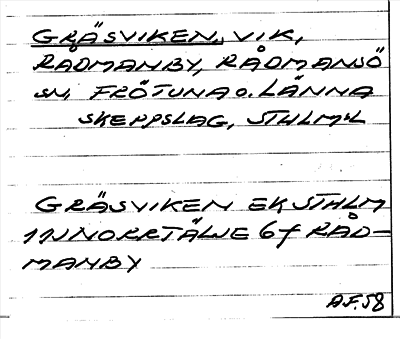 GRÄSVIKEN, VIK,
RÅDMANBY, RÅDMANSÖ
sn, FRÖTUNA o. LÄNNA
SKEPPSLAG, STHLM:L
GRÄSVIKEN EK STHLM
11NNORRTÄLJE 6f RÅD-
MANBY
A.F. 58